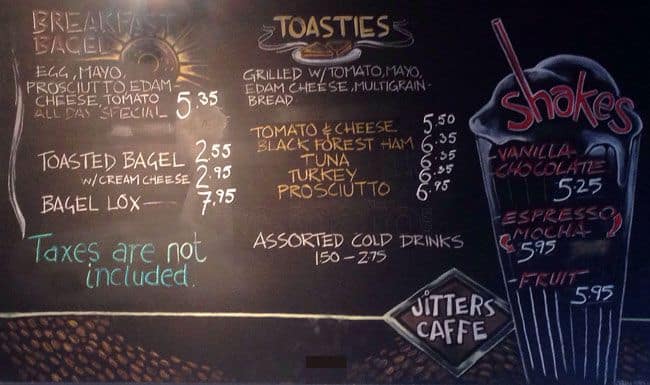 BREAKFAST
BAGEL
EGG, MAYO,
PROSCIUTTO EDAM-
CHEESE, TOMATO
ALL DAY SPECIAL 5.35
TOASTED BAGEL 2.55
W/CREAM CHEESE 2.95
BAGEL LOX— 7.95
Taxes are not
included.
TOASTIES
GRILLED W/TOMATO, MAYO,
EDAM CHEESE, MULTIGRAIN-
BREAD
TOMATO & CHEESE 5.50
BLACK FOREST HAM 6.35
TUNA 6.35
TURKEY 6.35
PROSCIUTTO 6.95
ASSORTED COLD DRINKS
1.50 – 2.75
JITTERS
CAFFE
Shakes
-VANILLA-
CHOCOLATE
5.25
-ESPRESSO
MOCHA
5.95
-FRUIT
5.95